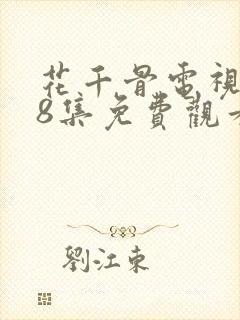 花千骨電視
8集免費觀看
劉江東